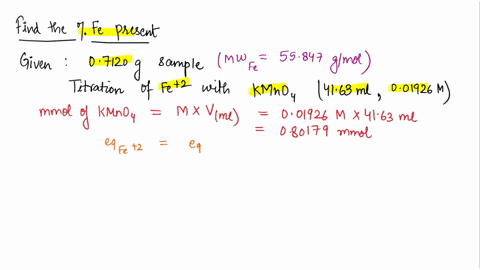 Find the % Fe present
Given : 0.7120 g sample (MW Fe = 55.847 g/mol)
Titration of Fe+2 with KMnO4 (41.63 ml, 0.01926 M)
mmol of KMnO4 = M x V(ml) = 0.01926 M x 41.63 ml
= 0.80179 mmol
eq Fe+2 = eq